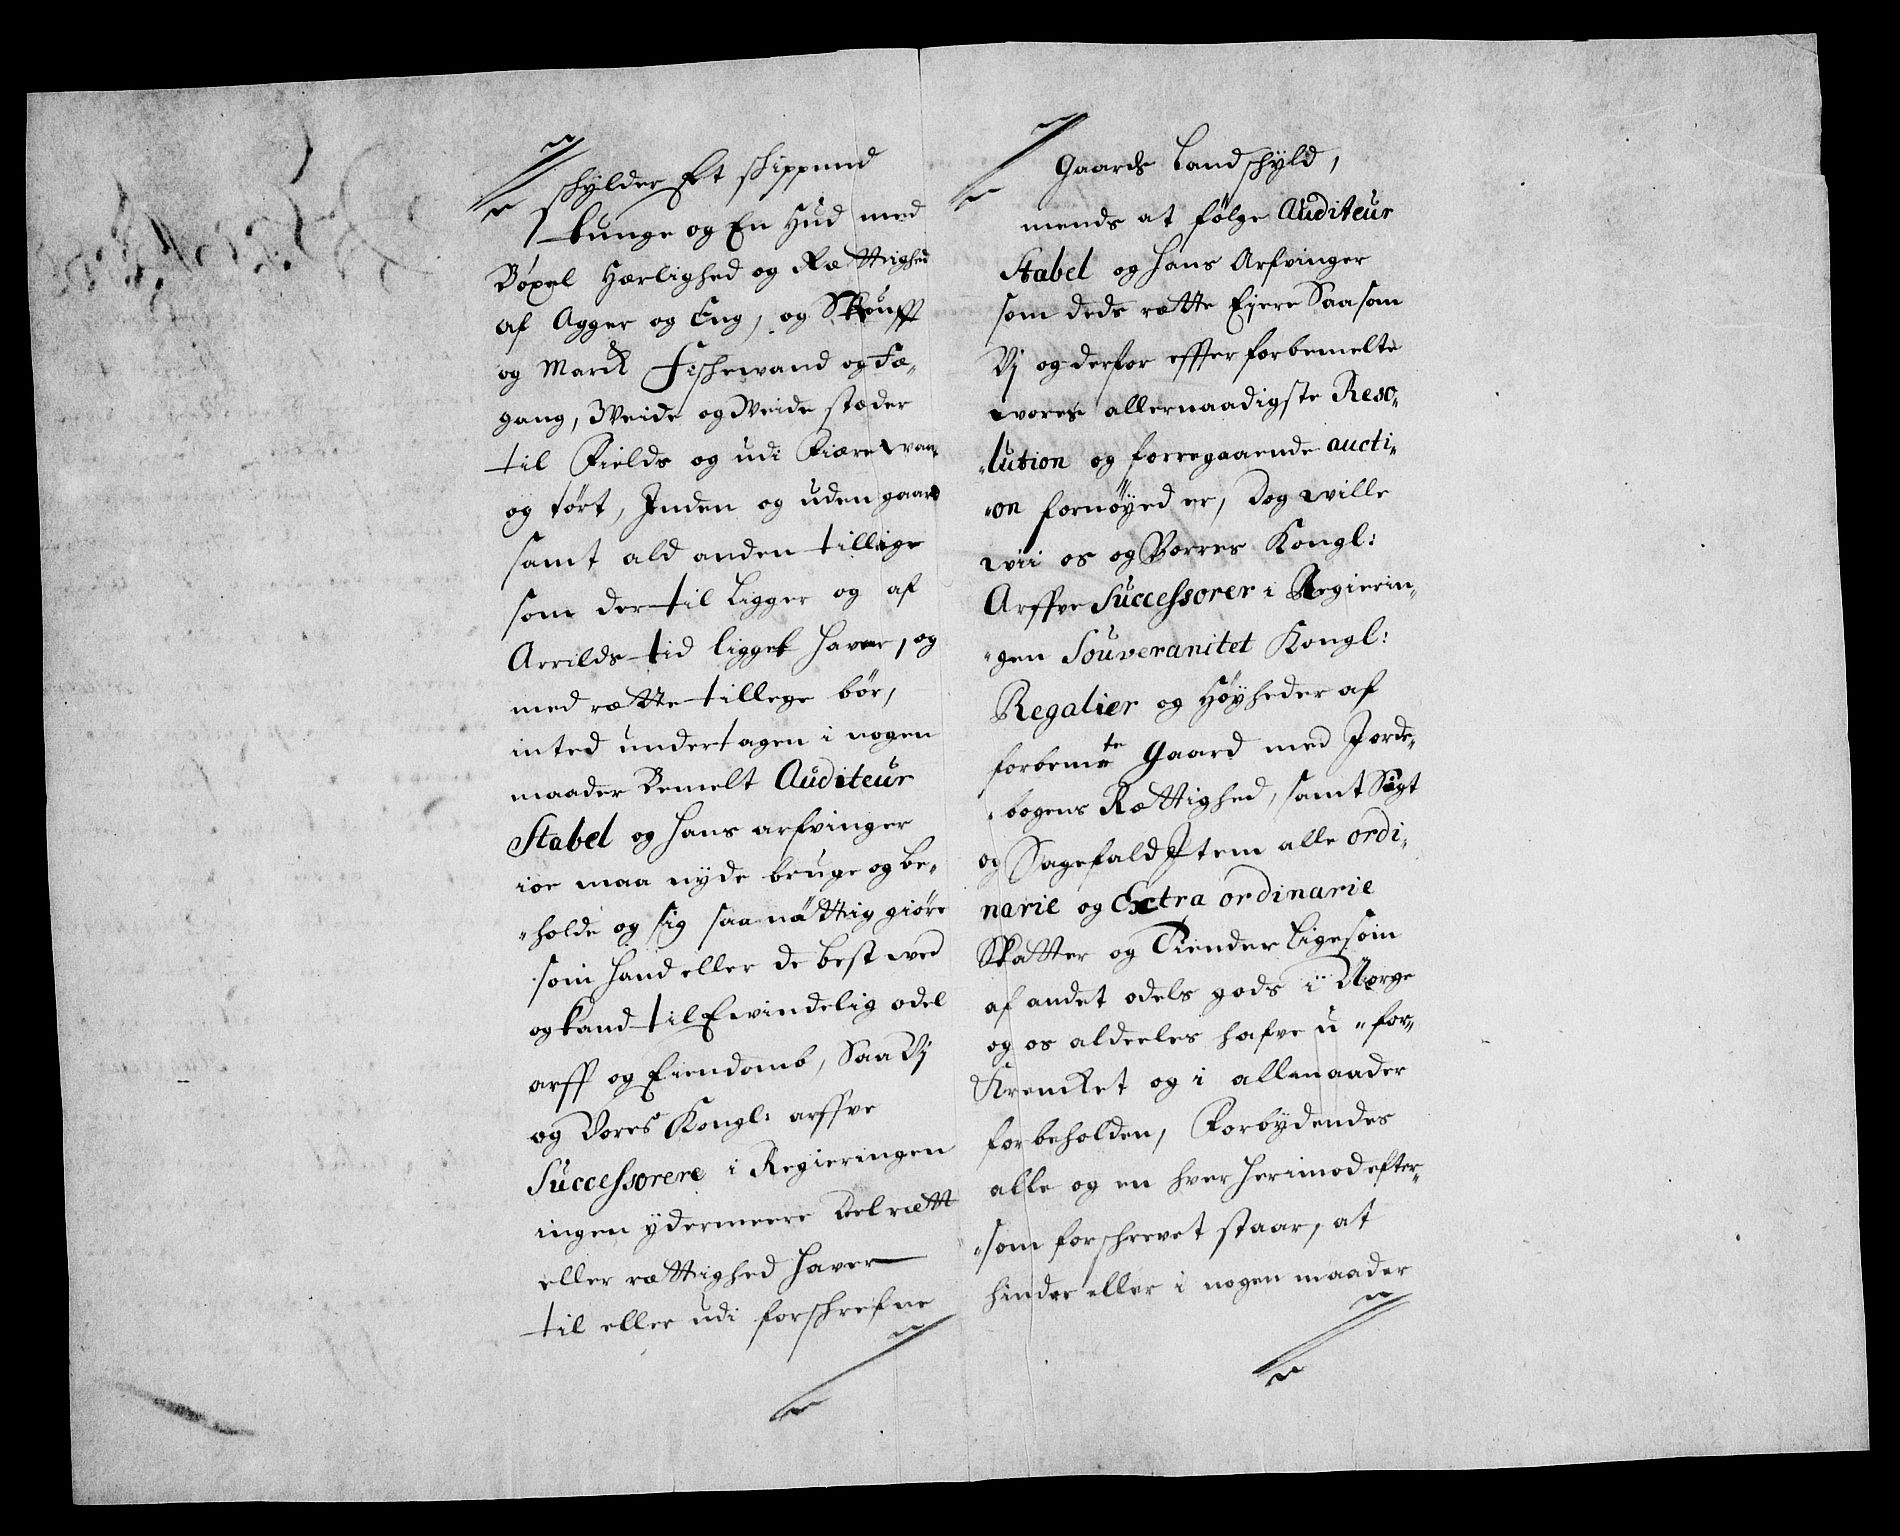 schylder Et schippund
tunge og En Hud med
Böxel Herlighed og Rættighed
af Agger og Eng, og Skouff
og Marck Fischewand og Fæ„
gang, Weide og Weide stæder
til Fields og udi Fiære wan„
og tört, Inden og uden gaard
samt ald anden tillige
som der til Ligger og af
Arrilds tid ligget haver, og
med rætte tillege bör,
inted undertagen i nogen
maader Bemelt Auditeur
Stabel og hans arfvinger
ioe maa nyde bruge og be„
„holde og sig saa nöttig giöre
som hand eller de best wed
og kand til Ewindelig odel
arff og Eiendomb, Saa Vj
og Vores Kongl: arffve
Successorere i Regieringen
ingen ydermeere Del rætt
eller rættighed haver
til eller udi forschrefne
Gaards Landschyld,
mends at følge Auditeur
Stabel og hans Arfvinger
som deds rætte Ejere Saasom
Vj og derfor effter forbemelte
wores allernaadigste Reso„
„lution og forregaaende aucti„
„on fornöyed er, Dog wille
wii os og Vorres Kongl:
Arffve Successorer i Regierin„
„gen Souveranitet Kongl:
Regalier og Höyheder af
forbemte Gaard med Jorde„
„bogens Rættighed, samt Sigt
og Sagefald Item alle ordi„
narie og Extra ordinarie
Skatter og Tiender Ligesom
af andet odels gods i Norge
og os aldeeles hafve u„for„
Krencket og i alle maader
forbeholden, Forbydendes
alle og en hver herimod efter„
„som forschrevet staar, at
hinder eller i nogen maader